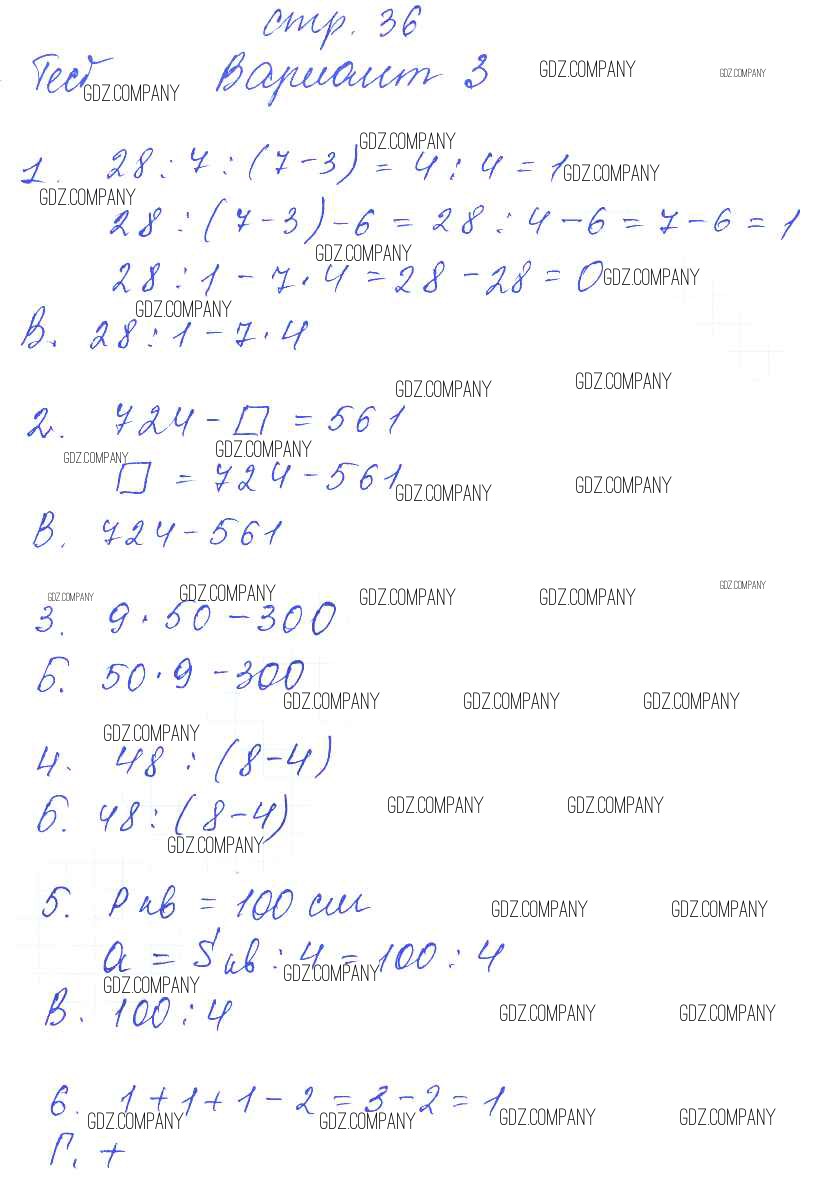 стр. 36
Тест Вариант 3
GDZ.COMPANY GDZ.COMPANY GDZ.COMPANY
GDZ.COMPANY
1. 28 : 7 : (7 - 3) = 4 : 4 = 1
GDZ.COMPANY GDZ.COMPANY
28 : (7 - 3) - 6 = 28 : 4 - 6 = 7 - 6 = 1
GDZ.COMPANY
28 : 1 - 7 · 4 = 28 - 28 = 0
GDZ.COMPANY
GDZ.COMPANY
В. 28 : 1 - 7 · 4
GDZ.COMPANY GDZ.COMPANY
2. 724 - □ = 561
GDZ.COMPANY GDZ.COMPANY
□ = 724 - 561
GDZ.COMPANY GDZ.COMPANY
В. 724 - 561
GDZ.COMPANY GDZ.COMPANY GDZ.COMPANY GDZ.COMPANY GDZ.COMPANY
3. 9 · 50 - 300
Б. 50 · 9 - 300
GDZ.COMPANY GDZ.COMPANY GDZ.COMPANY
GDZ.COMPANY
4. 48 : (8 - 4)
Б. 48 : (8 - 4)
GDZ.COMPANY GDZ.COMPANY
GDZ.COMPANY
5. P кв = 100 см
GDZ.COMPANY GDZ.COMPANY
a = S кв : 4 = 100 : 4
GDZ.COMPANY GDZ.COMPANY
В. 100 : 4
GDZ.COMPANY GDZ.COMPANY
6. 1 + 1 + 1 - 2 = 3 - 2 = 1
GDZ.COMPANY GDZ.COMPANY GDZ.COMPANY GDZ.COMPANY
Г. +